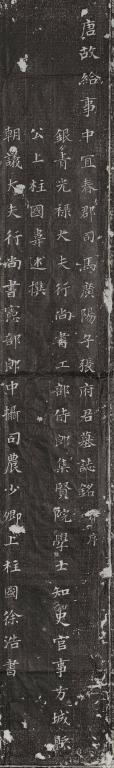 唐故給事中宜春郡司馬廣陽子張府君墓誌銘并序
銀青光祿大夫行尚書工部侍郎集賢院學士知史官事方城縣
公上柱國韋述撰
朝議大夫行尚書憲部郎中攝司農少卿上柱國徐浩書